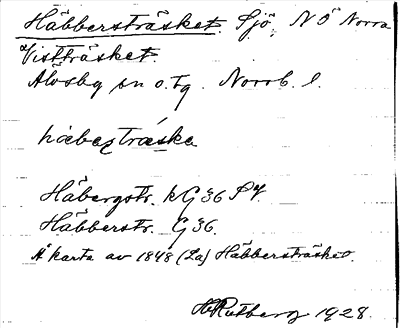 Häbbersträsket. Sjö, NÖ Norra
Vistträsket.
Älvsby sn o. tg. Norrb. l.
hæbeʒtræska
Häbergstr. kG 36 S
Häbberstr. G 36.
Å karta av 1848 (La) Häbbersträsket.
HRutberg 1928.